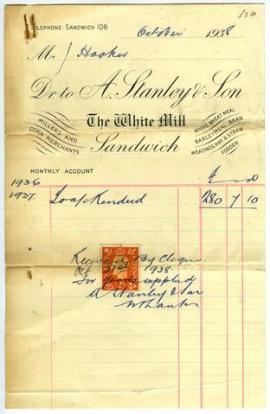 TELEPHONE: SANDWICH 106
October 1938
Mr J Hooker
Dr to A. Stanley & Son
The White Mill
Sandwich
MILLERS AND
CORN MERCHANTS
WHOLE WHEAT MEAL
BARLEYMEAL, BRAN
WEATINGS, HAY & STRAW
FODDER
MONTHLY ACCOUNT
£ s d
1936
1937. 280 7 10
Received By Cheque
Oct 31st 1938
for supplied
A Stanley & Son
W Thanks